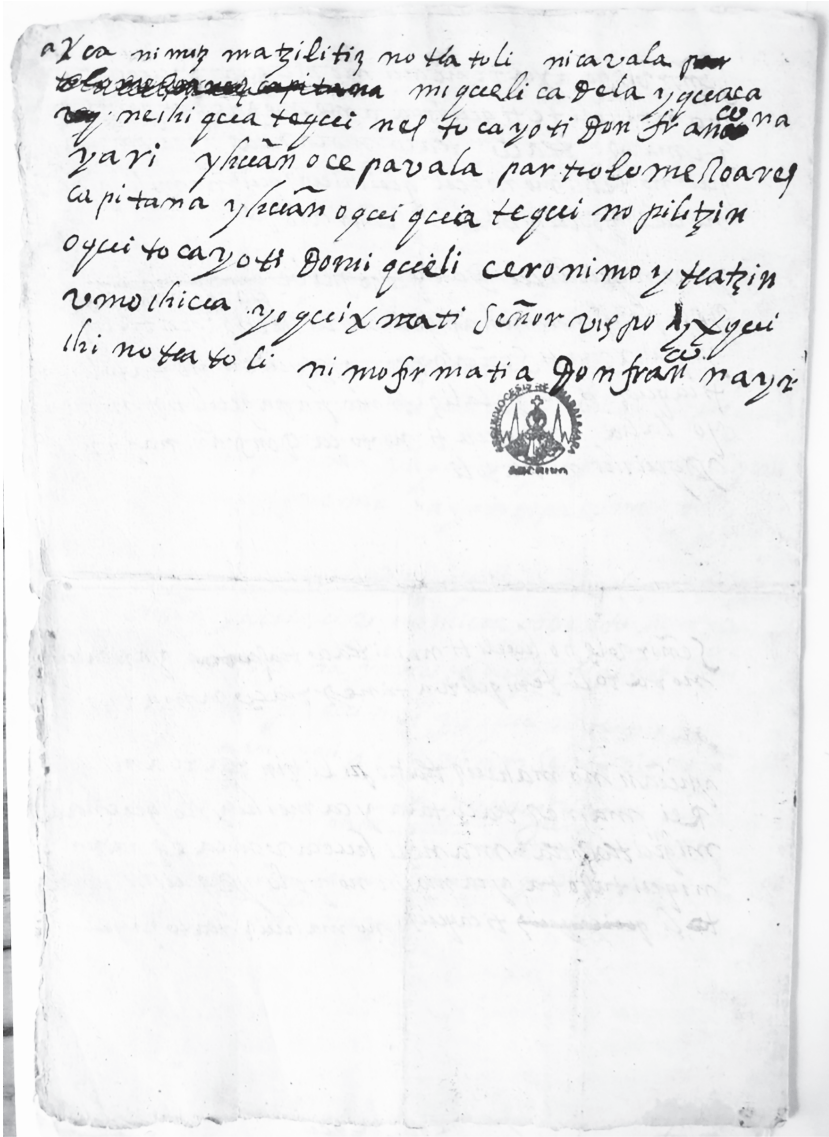 axca nimitz matzilitiz notlatoli nicavala par
tolome loarez capitana migueli cadela yquiaca
neihi quia tequi nes tocayoti Don franco na
yari yhuān oce pavala partolome loares
capitana yhuān oqui quia tequi nopiltzin
oqui tocayoti Domiqueli ceronimo ytlatzin
vmochicca yoquixmati Señor vispo yxqui
ihi notlatoli nimofirmatia Don franco nayr
ARCHIVO